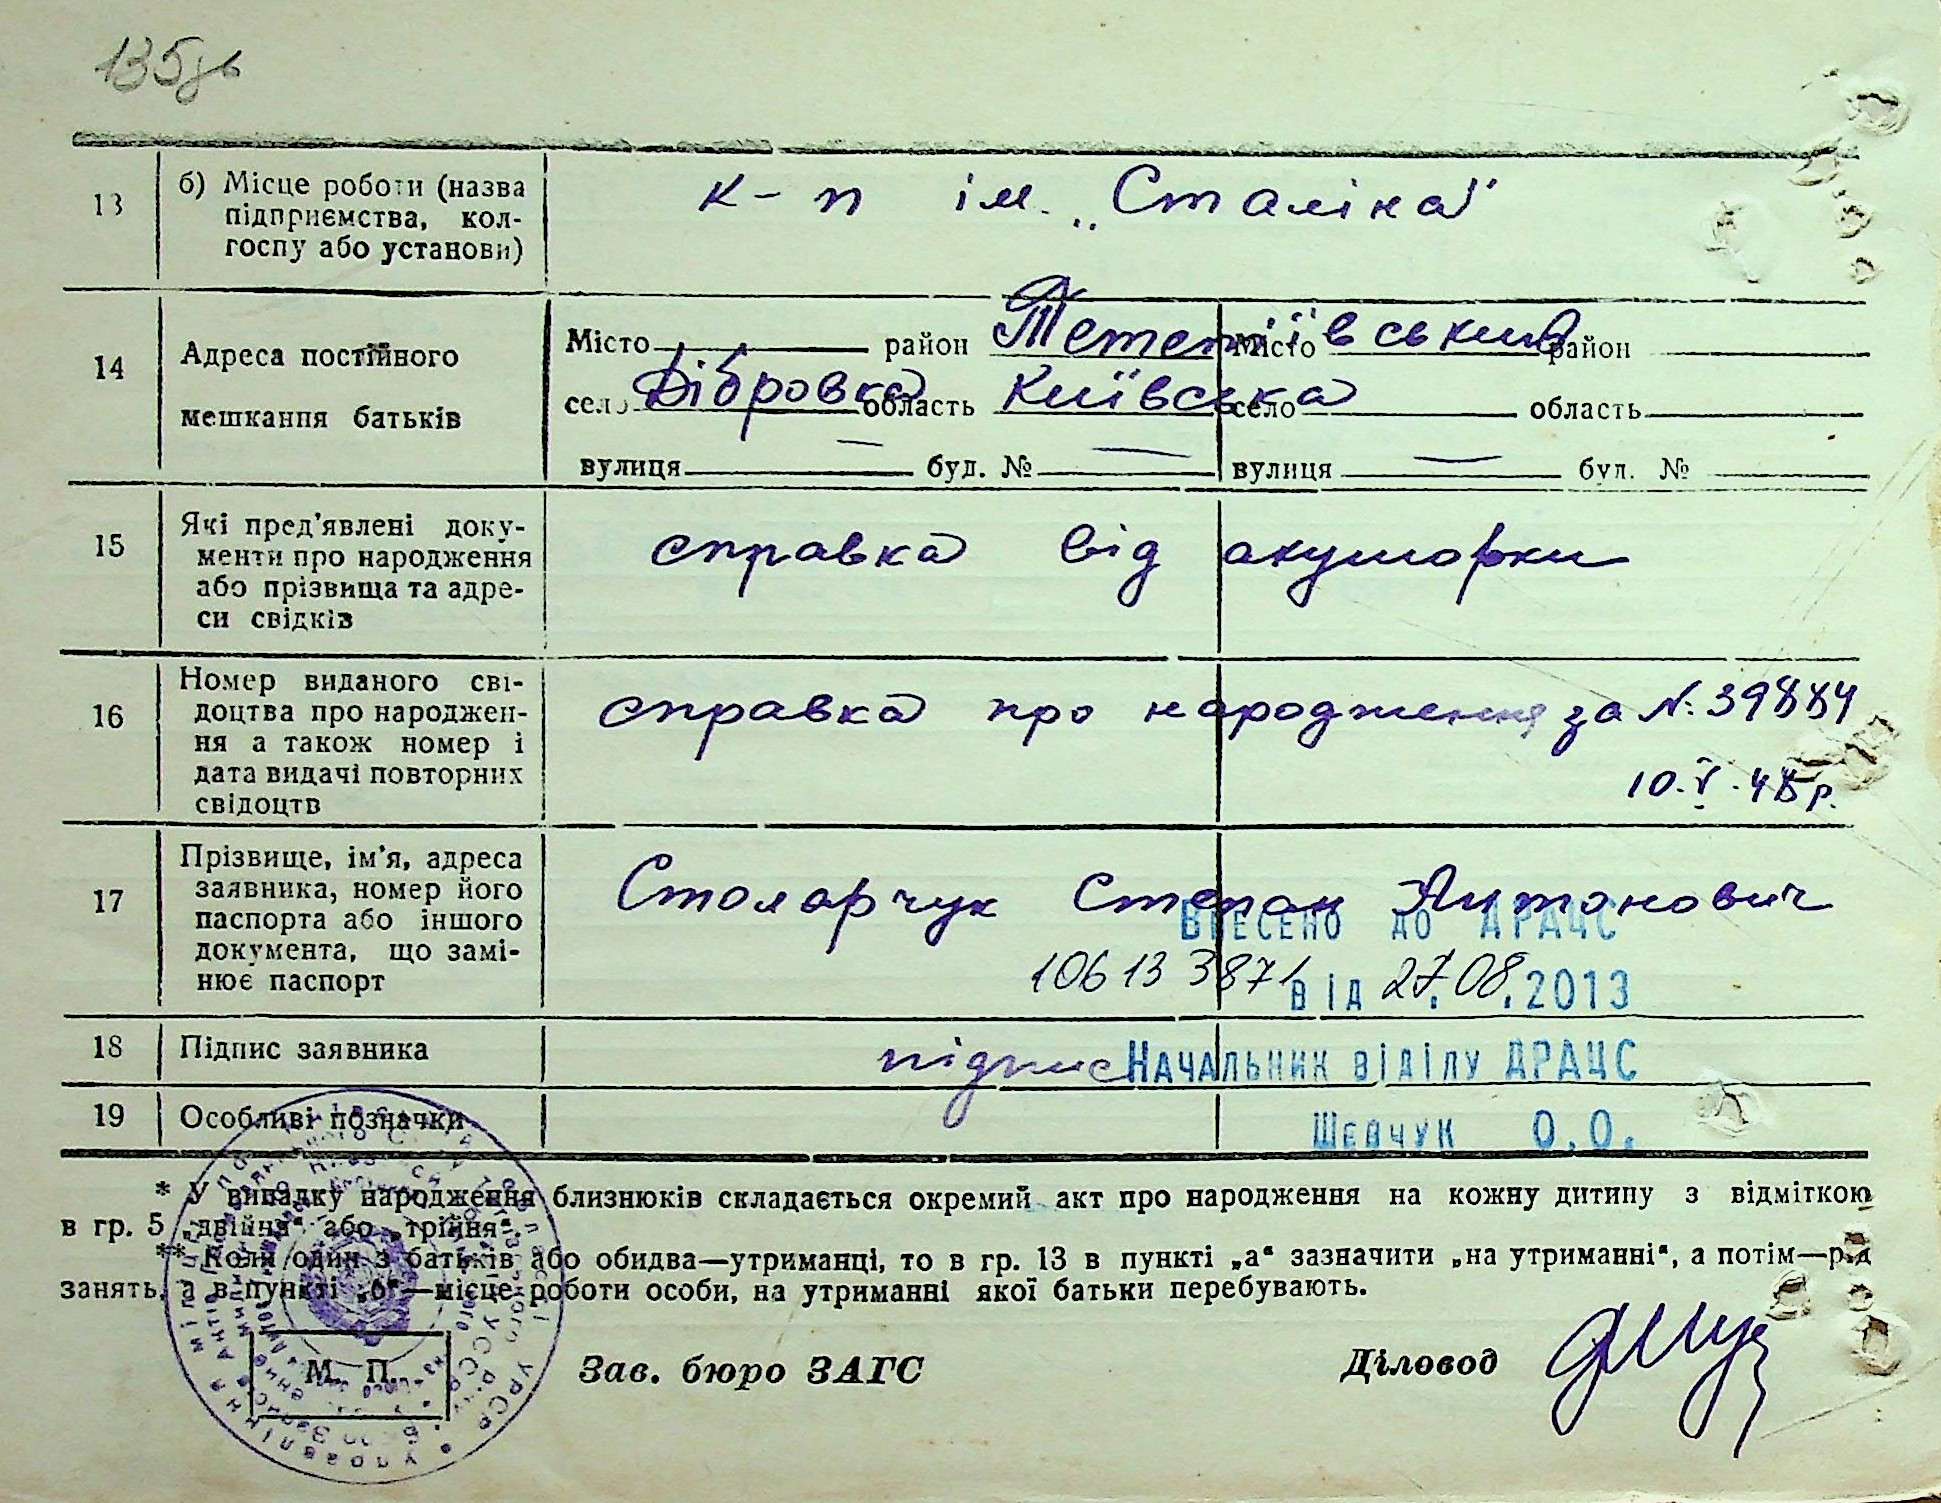 13 б) Місце роботи (назва
підприємства, кол-
госпу або установи)
к-п ім. „Сталіна"
14 Адреса постійного
мешкання батьків
Місто район Тетеріївський Місто район
село Дібровка область Київська село область
вулиця — буд. № — вулиця — буд. №
15 Які пред'явлені доку-
менти про народження
або прізвища та адре-
си свідків
справка від акушорки
16 Номер виданого сві-
доцтва про народжен-
ня а також номер і
дата видачі повторних
свідоцтв
справка про народження за №: 39884
10.V.48р.
17 Прізвище, ім'я, адреса
заявника, номер його
паспорта або іншого
документа, що замі-
нює паспорт
Столарчук Степан Антонович
Внесено до ДРАЦС
106133871 від 27.08.2013
18 Підпис заявника підпис Начальник віділу ДРАЦС
19 Особливі позначки Шевчук О.О.
* У випадку народження близнюків складається окремий акт про народження на кожну дитину з відміткою
в гр. 5 „двійня“ або „трійня“.
** Коли один з батьків або обидва—утриманці, то в гр. 13 в пункті „а“ зазначити „на утриманні“, а потім—рід
занять, а в пункті „б“—місце роботи особи, на утриманні якої батьки перебувають.
М. П. Зав. бюро ЗАГС Діловод